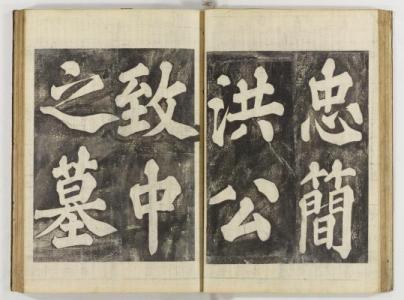 忠簡
洪公
致中
之墓